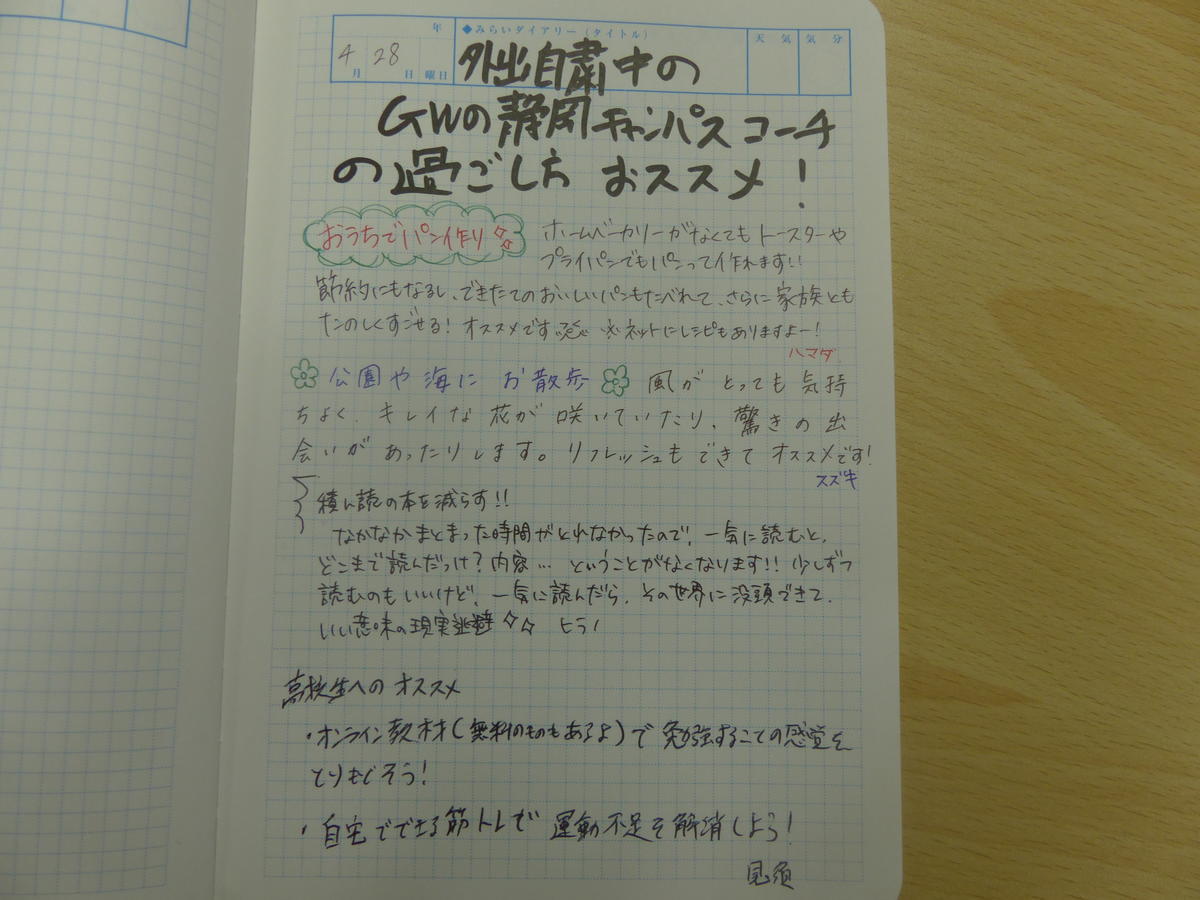 年
◆みらいダイアリー(タイトル)
天 気
気 分
4月 28日 曜日
外出自粛中の
GWの静岡キャンパスコーチ
の過ごし方 おススメ!
おうちでパン作り
ホームベーカリーがなくてもトースターや
フライパンでもパンって作れます!!
節約にもなるし、できたてのおいしいパンもたべれて、さらに家族とも
たのしくすごせる! オススメです ※ネットにレシピもありますよー!
ハマダ
公園や海に お散歩 風が とっても 気持
ちよく、キレイな 花が 咲いていたり、驚きの出
会いが あったりします。リフレッシュも できて オススメです!
スズキ
積ん読の本を減らす!!
なかなかまとまった時間がとれなかったので、一気に読むと、
どこまで読んだっけ?内容… ということがなくなります!! 少しずつ
読むのもいいけど、一気に読んだら、その世界に没頭できて、
いい意味の現実逃避 ヒラノ
高校生へのオススメ
・オンライン教材(無料のものもあるよ)で 勉強することの感覚を
とりもどそう!
・自宅でできる筋トレで 運動不足を解消しよう!
見須